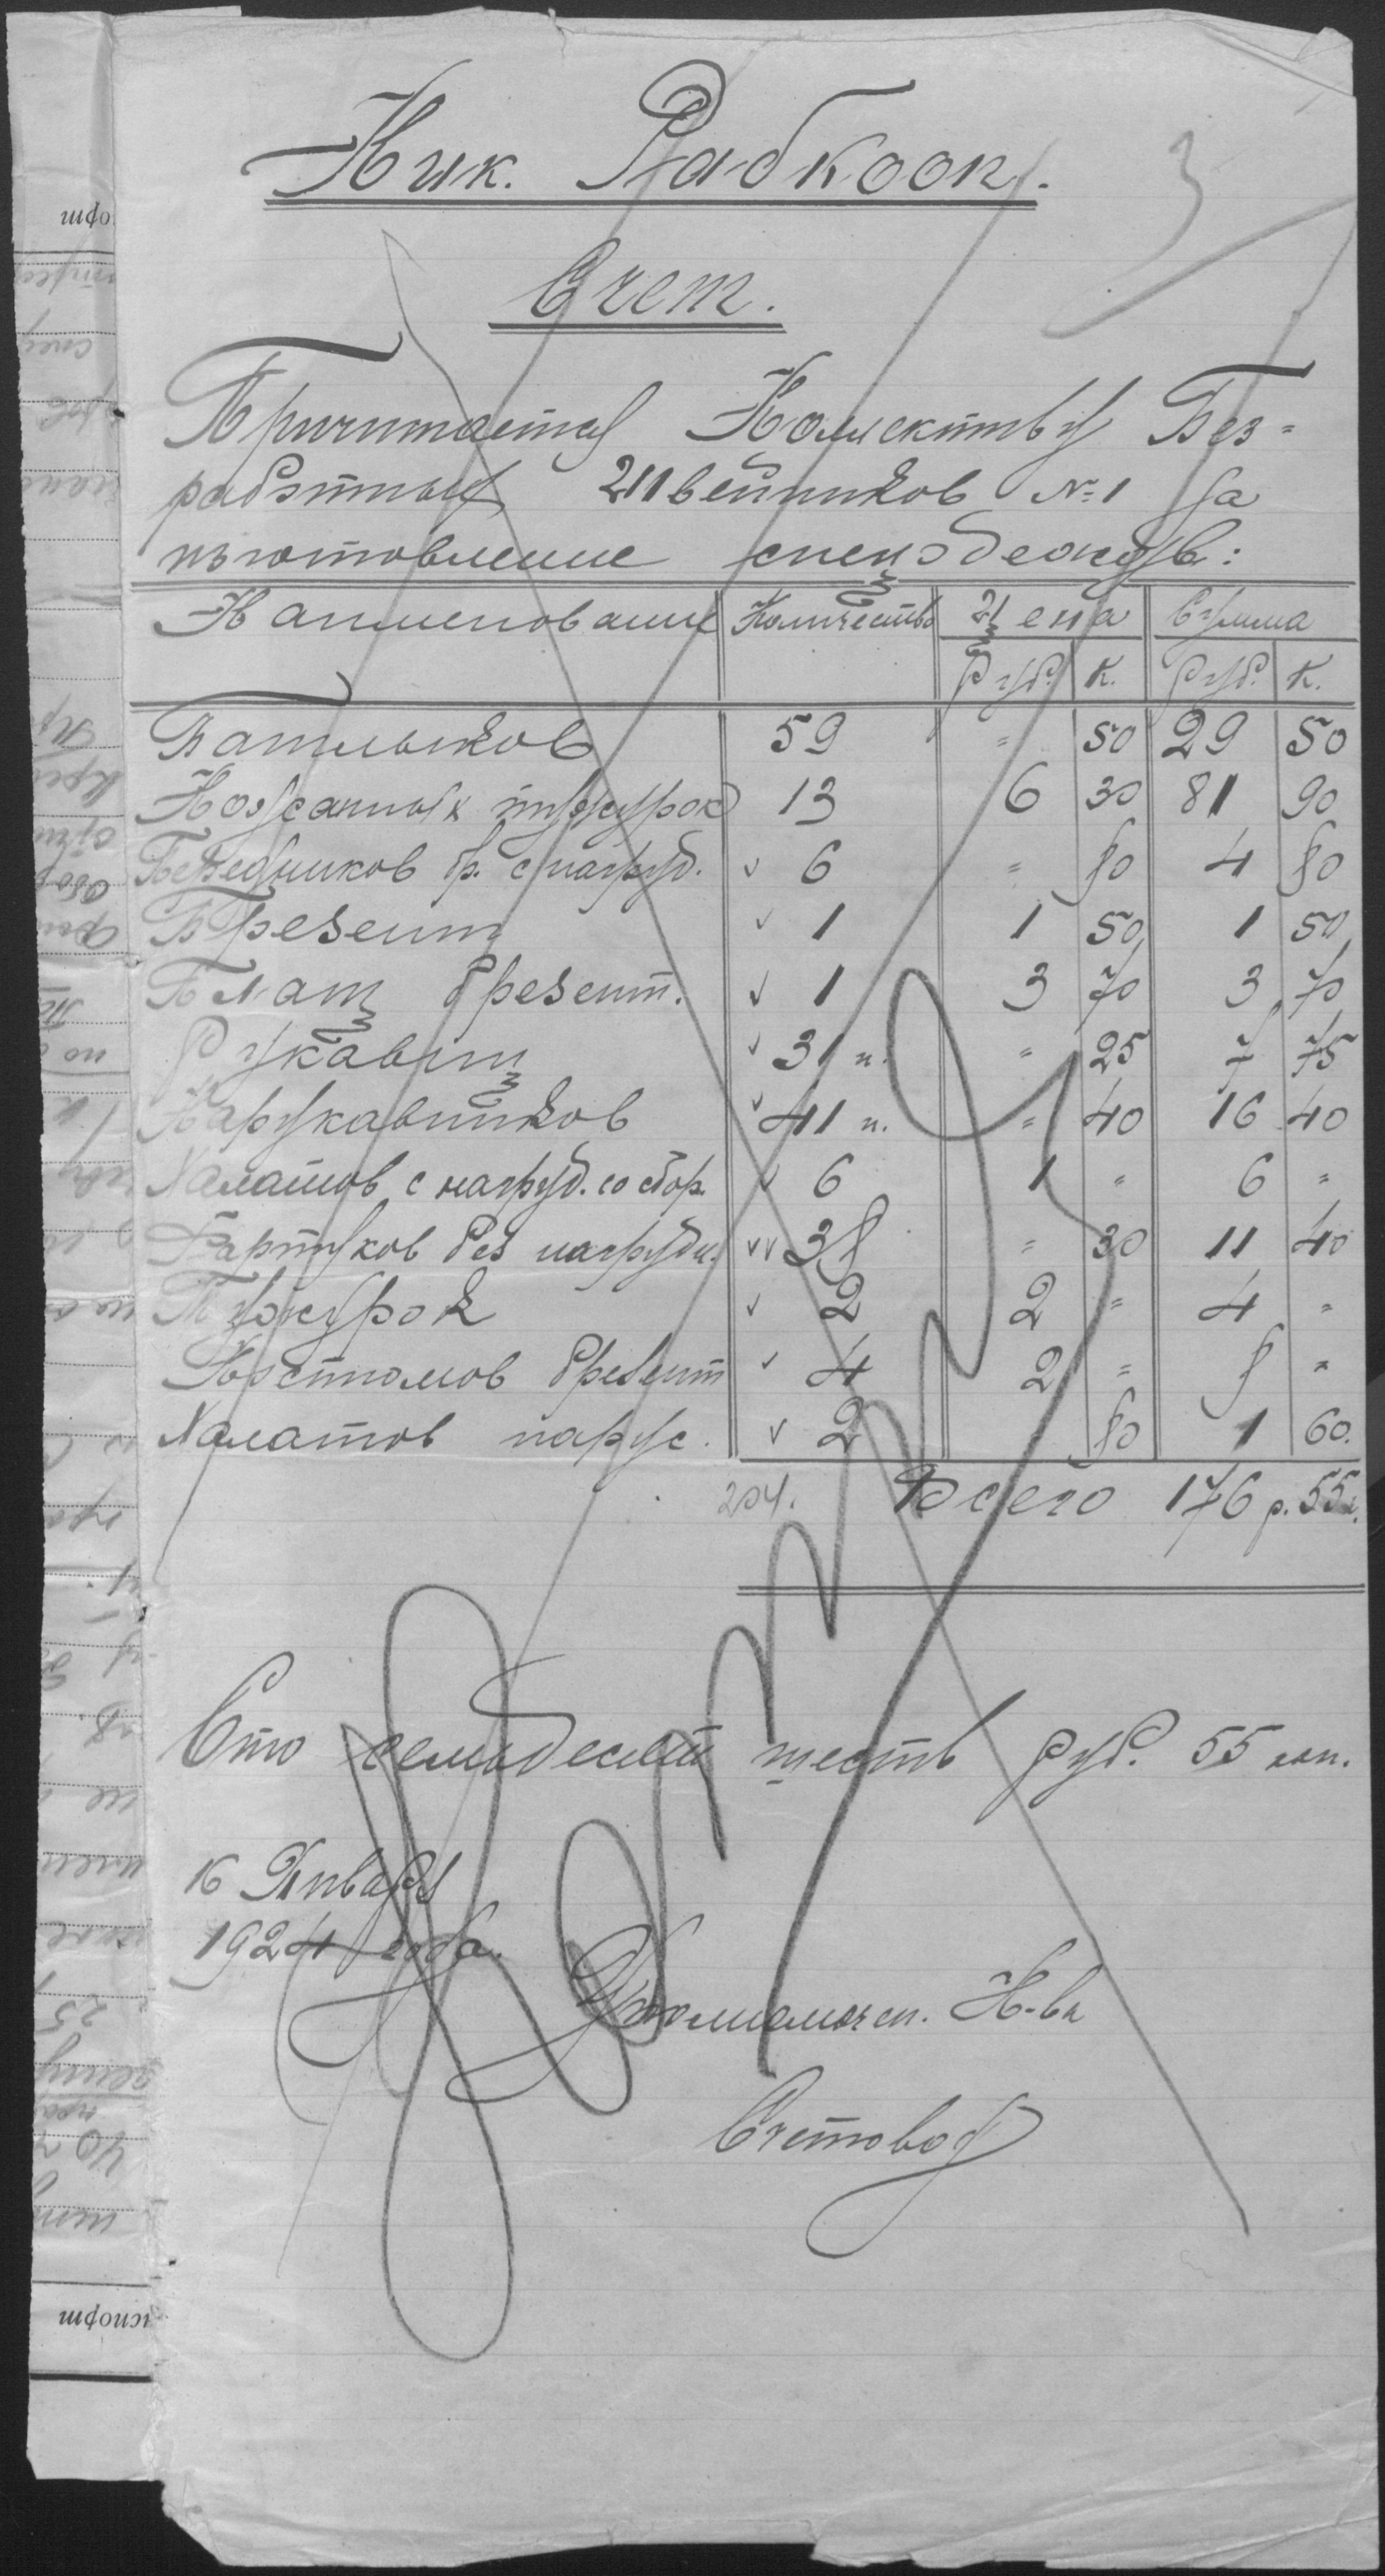 Ник. Рабкооп.
Счет.
Причитается Коллективу Без-
работных Швейников №1 за
изготовление спецодежды:
Наименование Количество Цена Сумма
Руб. К. Руб. К.
Башлыков 59 " 50 29 50
Кожанных тужурок 13 6 30 81 90
Передников бр. с нагруд. ✓ 6 " 80 4 80
Брезент ✓ 1 1 50 1 50
Плащ брезент. ✓ 1 3 70 3 70
Рукавиц ✓ 31 п. " 25 7 75
Нарукавников ✓ 41 п. " 40 16 40
Халатов с нагруд. со сбор. ✓ 6 1 " 6 "
Фартуков без нагрудн. ✓✓ 38 " 30 11 40
Тужурок ✓ 2 2 " 4 "
Костюмов брезент ✓ 4 2 " 8 "
Халатов парус. ✓ 2 80 1 60.
204. Всего 176 р. 55 к.
Сто семьдесят шесть руб. 55 коп.
16 Января
1924 года.
Уполномочен. К-ва
Счетовод